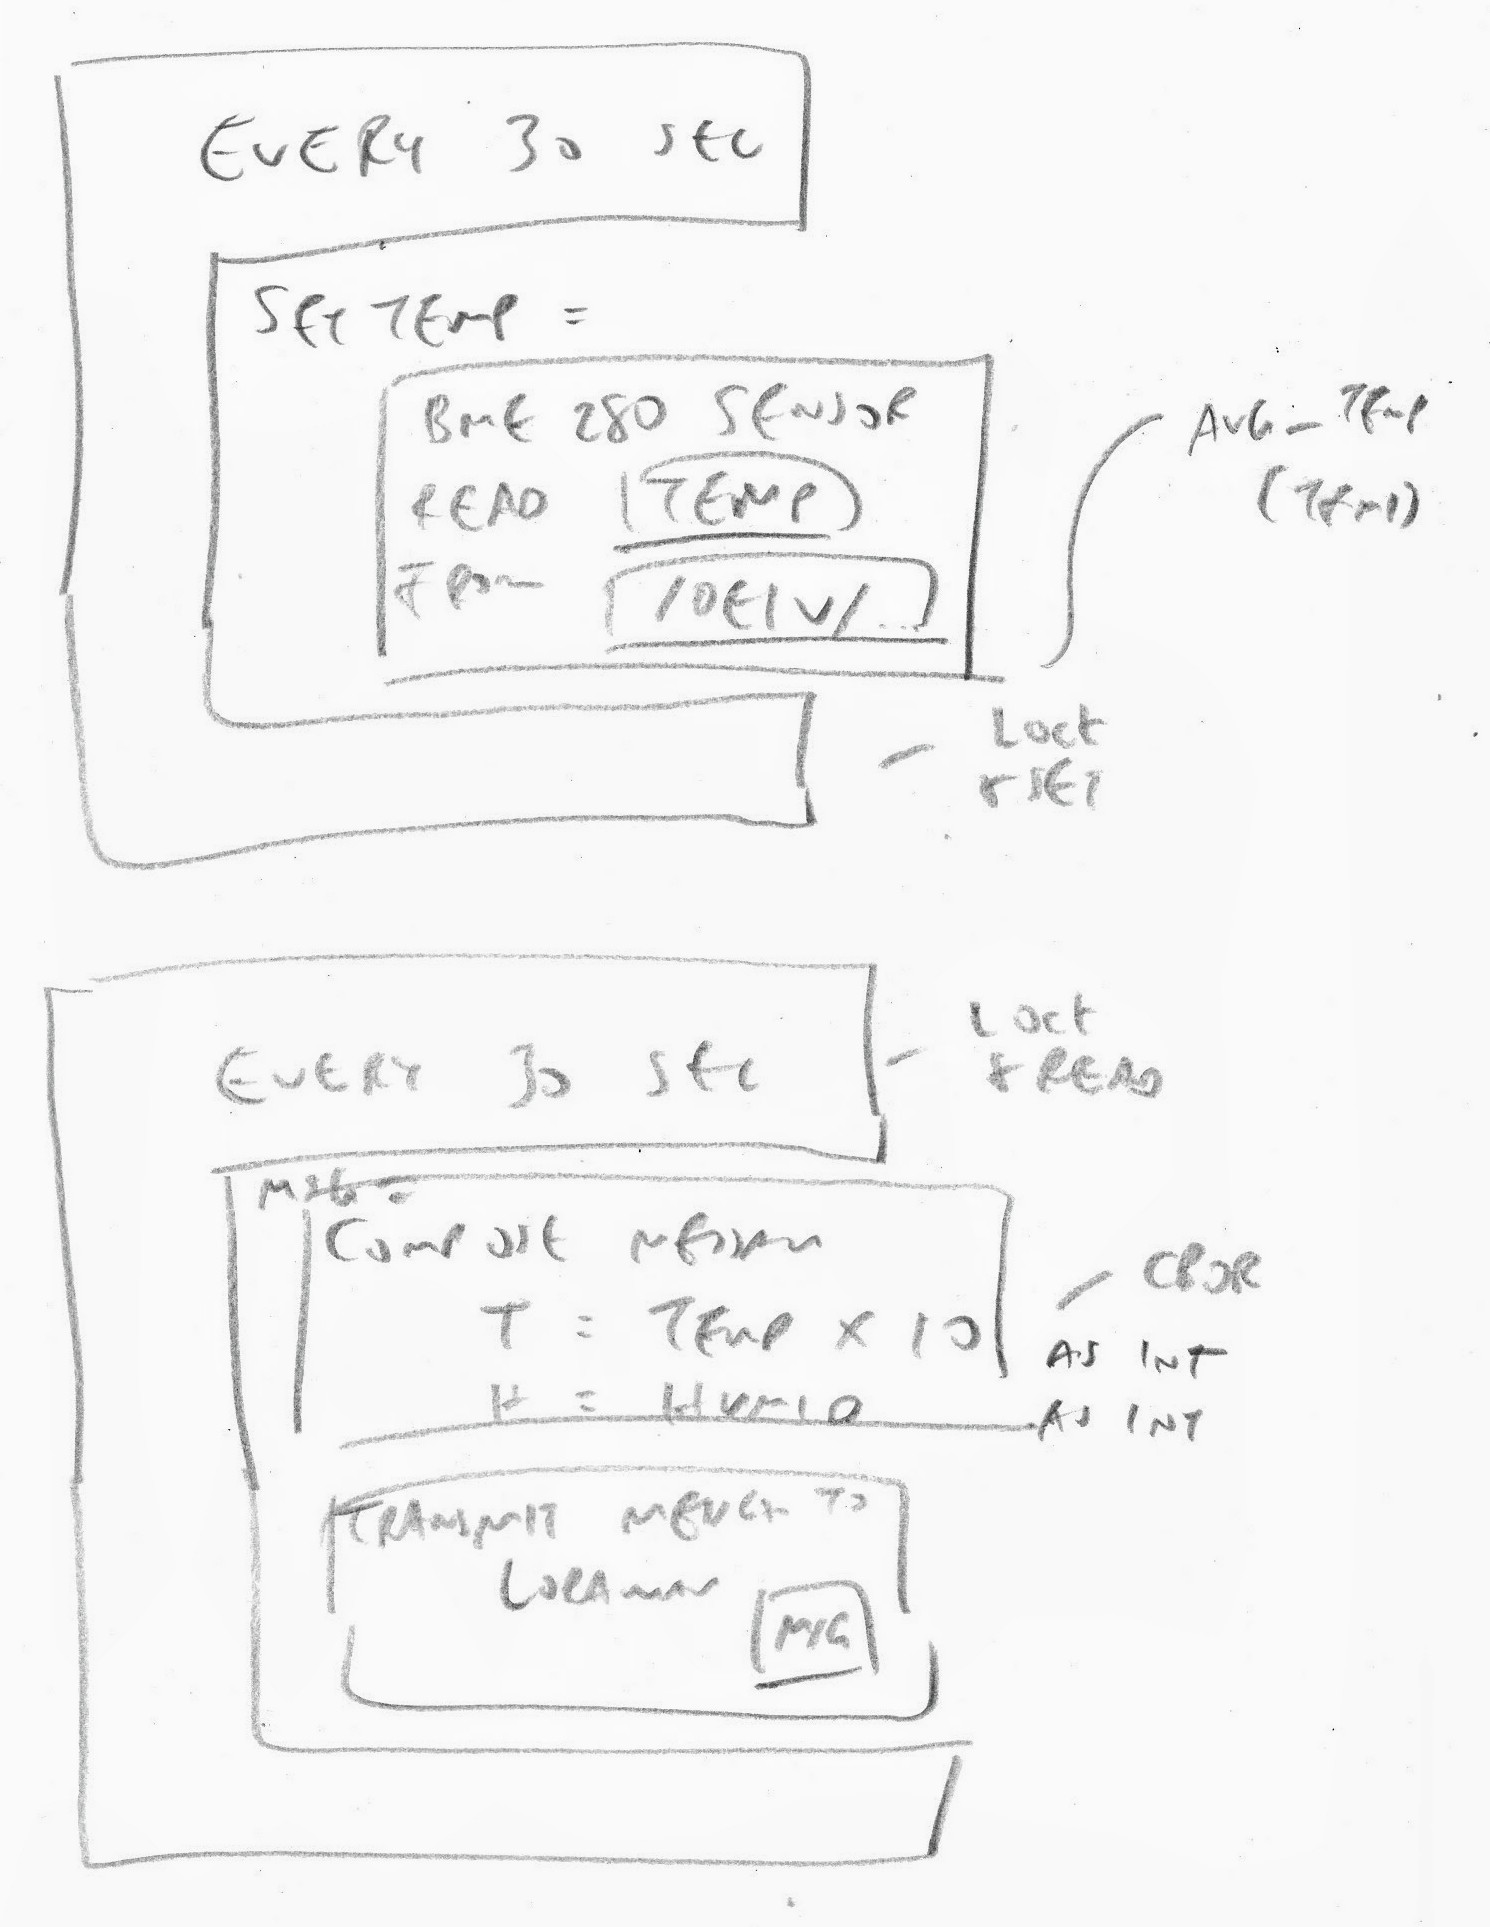 EVERY 30 SEC
SET TEMP =
BME 280 SENSOR
READ (TEMP)
FROM /DE/V/...
AVG_TEMP
(TEMP)
LOCK
& SET
EVERY 30 SEC
LOCK
& READ
MSG =
COMPOSE MESSAGE
T = TEMP X 10
H = HUMID
CBOR
AS INT
AS INT
TRANSMIT MESSAGE TO
LORAWAN
MSG